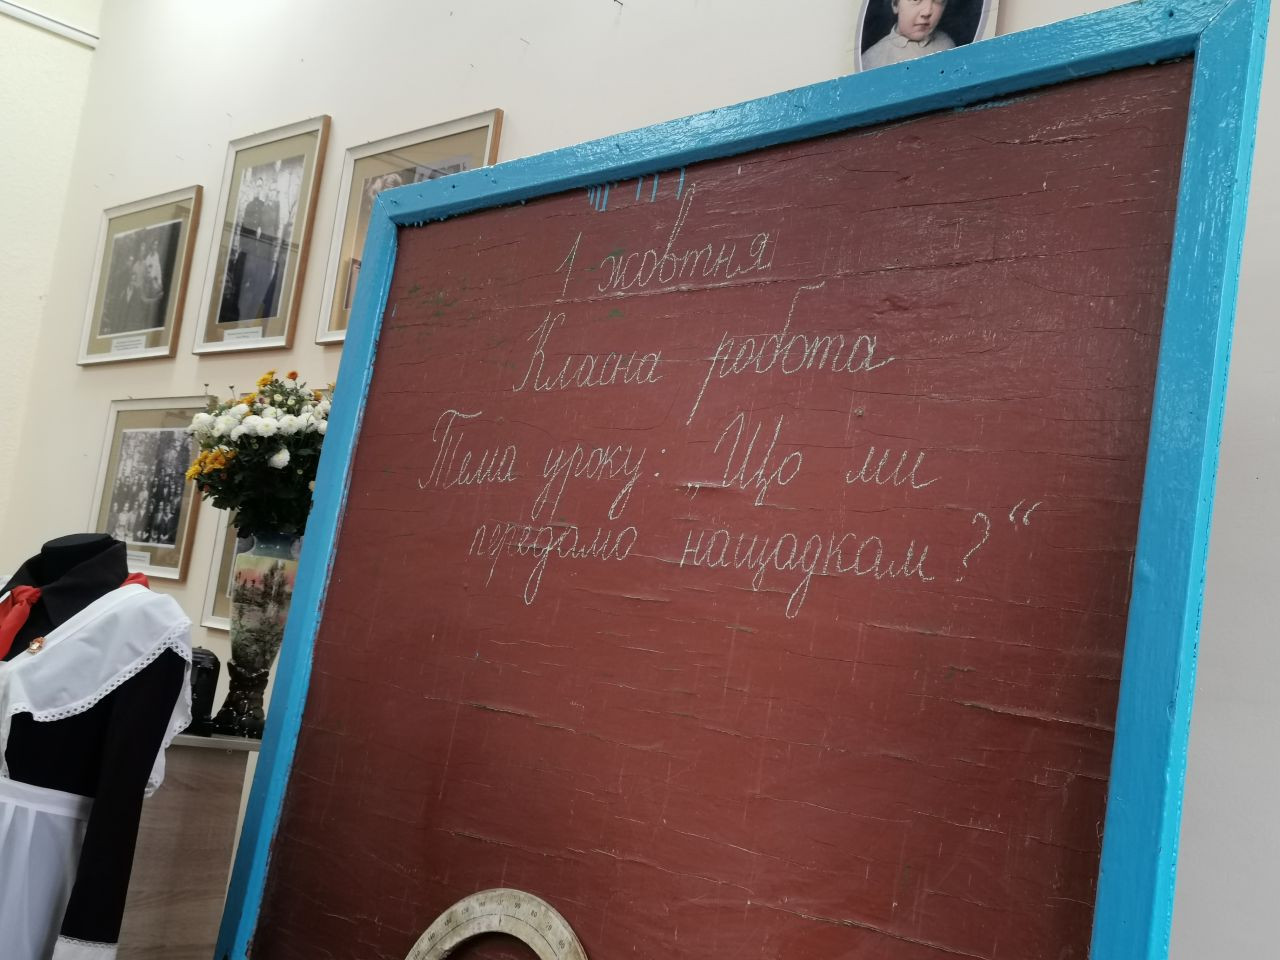 1 жовтня
Класна робота
Тема уроку: „Що ми
передамо нащадкам?“